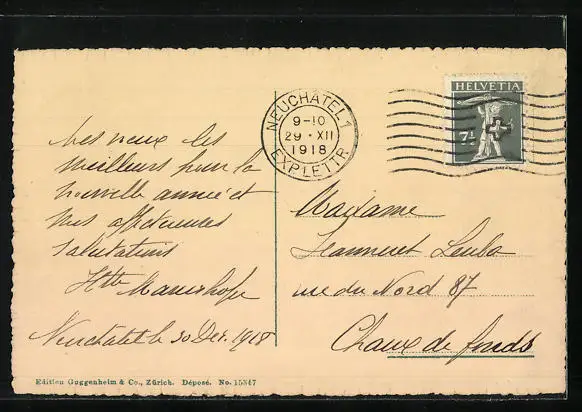 NEUCHATEL 1
9-10
29·XII
1918
EXP. LETTR.
HELVETIA
7½
Mes vœux les
meilleurs pour la
nouvelle année et
mes affectueuses
salutations
Neuchâtel le 30 Déc. 1918
Madame
Jeanneret Leuba
rue du Nord 87
Chaux de fonds
Edition Guggenheim & Co., Zürich. Déposé. No. 15347